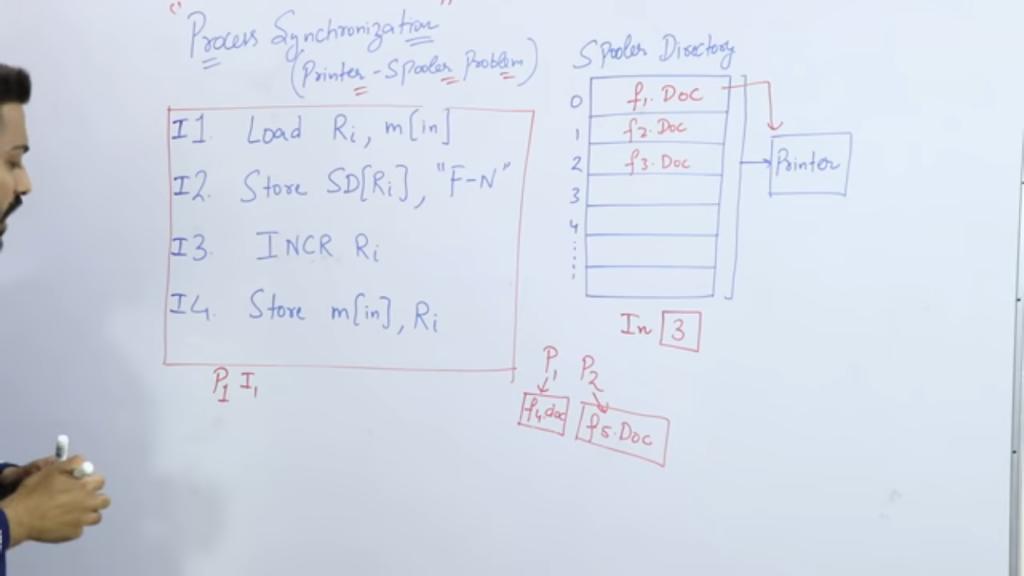 "Process Synchronization"
(Printer-Spooler Problem)
I1. Load Ri, m[in]
I2. Store SD[Ri], "F-N"
I3. INCR Ri
I4. Store m[in], Ri
P1 I1
Spooler Directory
0 f1.Doc
1 f2.Doc
2 f3.Doc
3
4
Printer
In 3
P1 P2
f4.doc f5.Doc